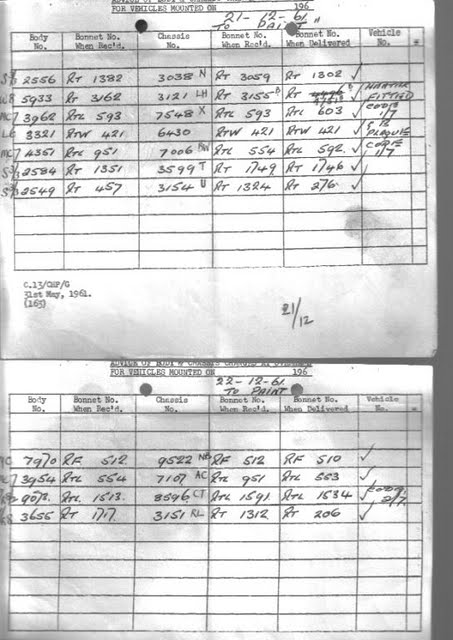 FOR VEHICLES MOUNTED ON 21-12-61 196
TO PAINT "
Body No. Bonnet No. When Rec'd. Chassis No. Bonnet No. When Rec'd. Bonnet No. When Delivered Vehicle No.
2556 RT 1382 3038 N RT 3059 RT 1302 ✓
5933 RT 3162 3121 LH RT 3155 B ✓ FITTED
3962 RTL 593 7548 X RTL 593 RTL 603 ✓ 1/7
L6 3321 RTW 421 6430 RTW 421 RTW 421 ✓
4351 RTL 951 7006 RTL 554 RTL 592 ✓ 1/7
2584 RT 1351 3599 T RT 1749 RT 1746 ✓
2549 RT 457 3154 U RT 1324 RT 276 ✓
C.13/CHP/G
31st May, 1961.
(163)
21/12
FOR VEHICLES MOUNTED ON 196
22-12-61
TO PAINT
Body No. Bonnet No. When Rec'd. Chassis No. Bonnet No. When Rec'd. Bonnet No. When Delivered Vehicle No.
7970 RF 512 9522 RF 512 RF 510 ✓
3954 RTL 554 7107 AC RTL 951 RTL 553 ✓
RTL 1513 8596 CT RTL 1591 RTL 1534 ✓ 2/7
3655 RT 1717 3151 RL RT 1312 RT 206 ✓